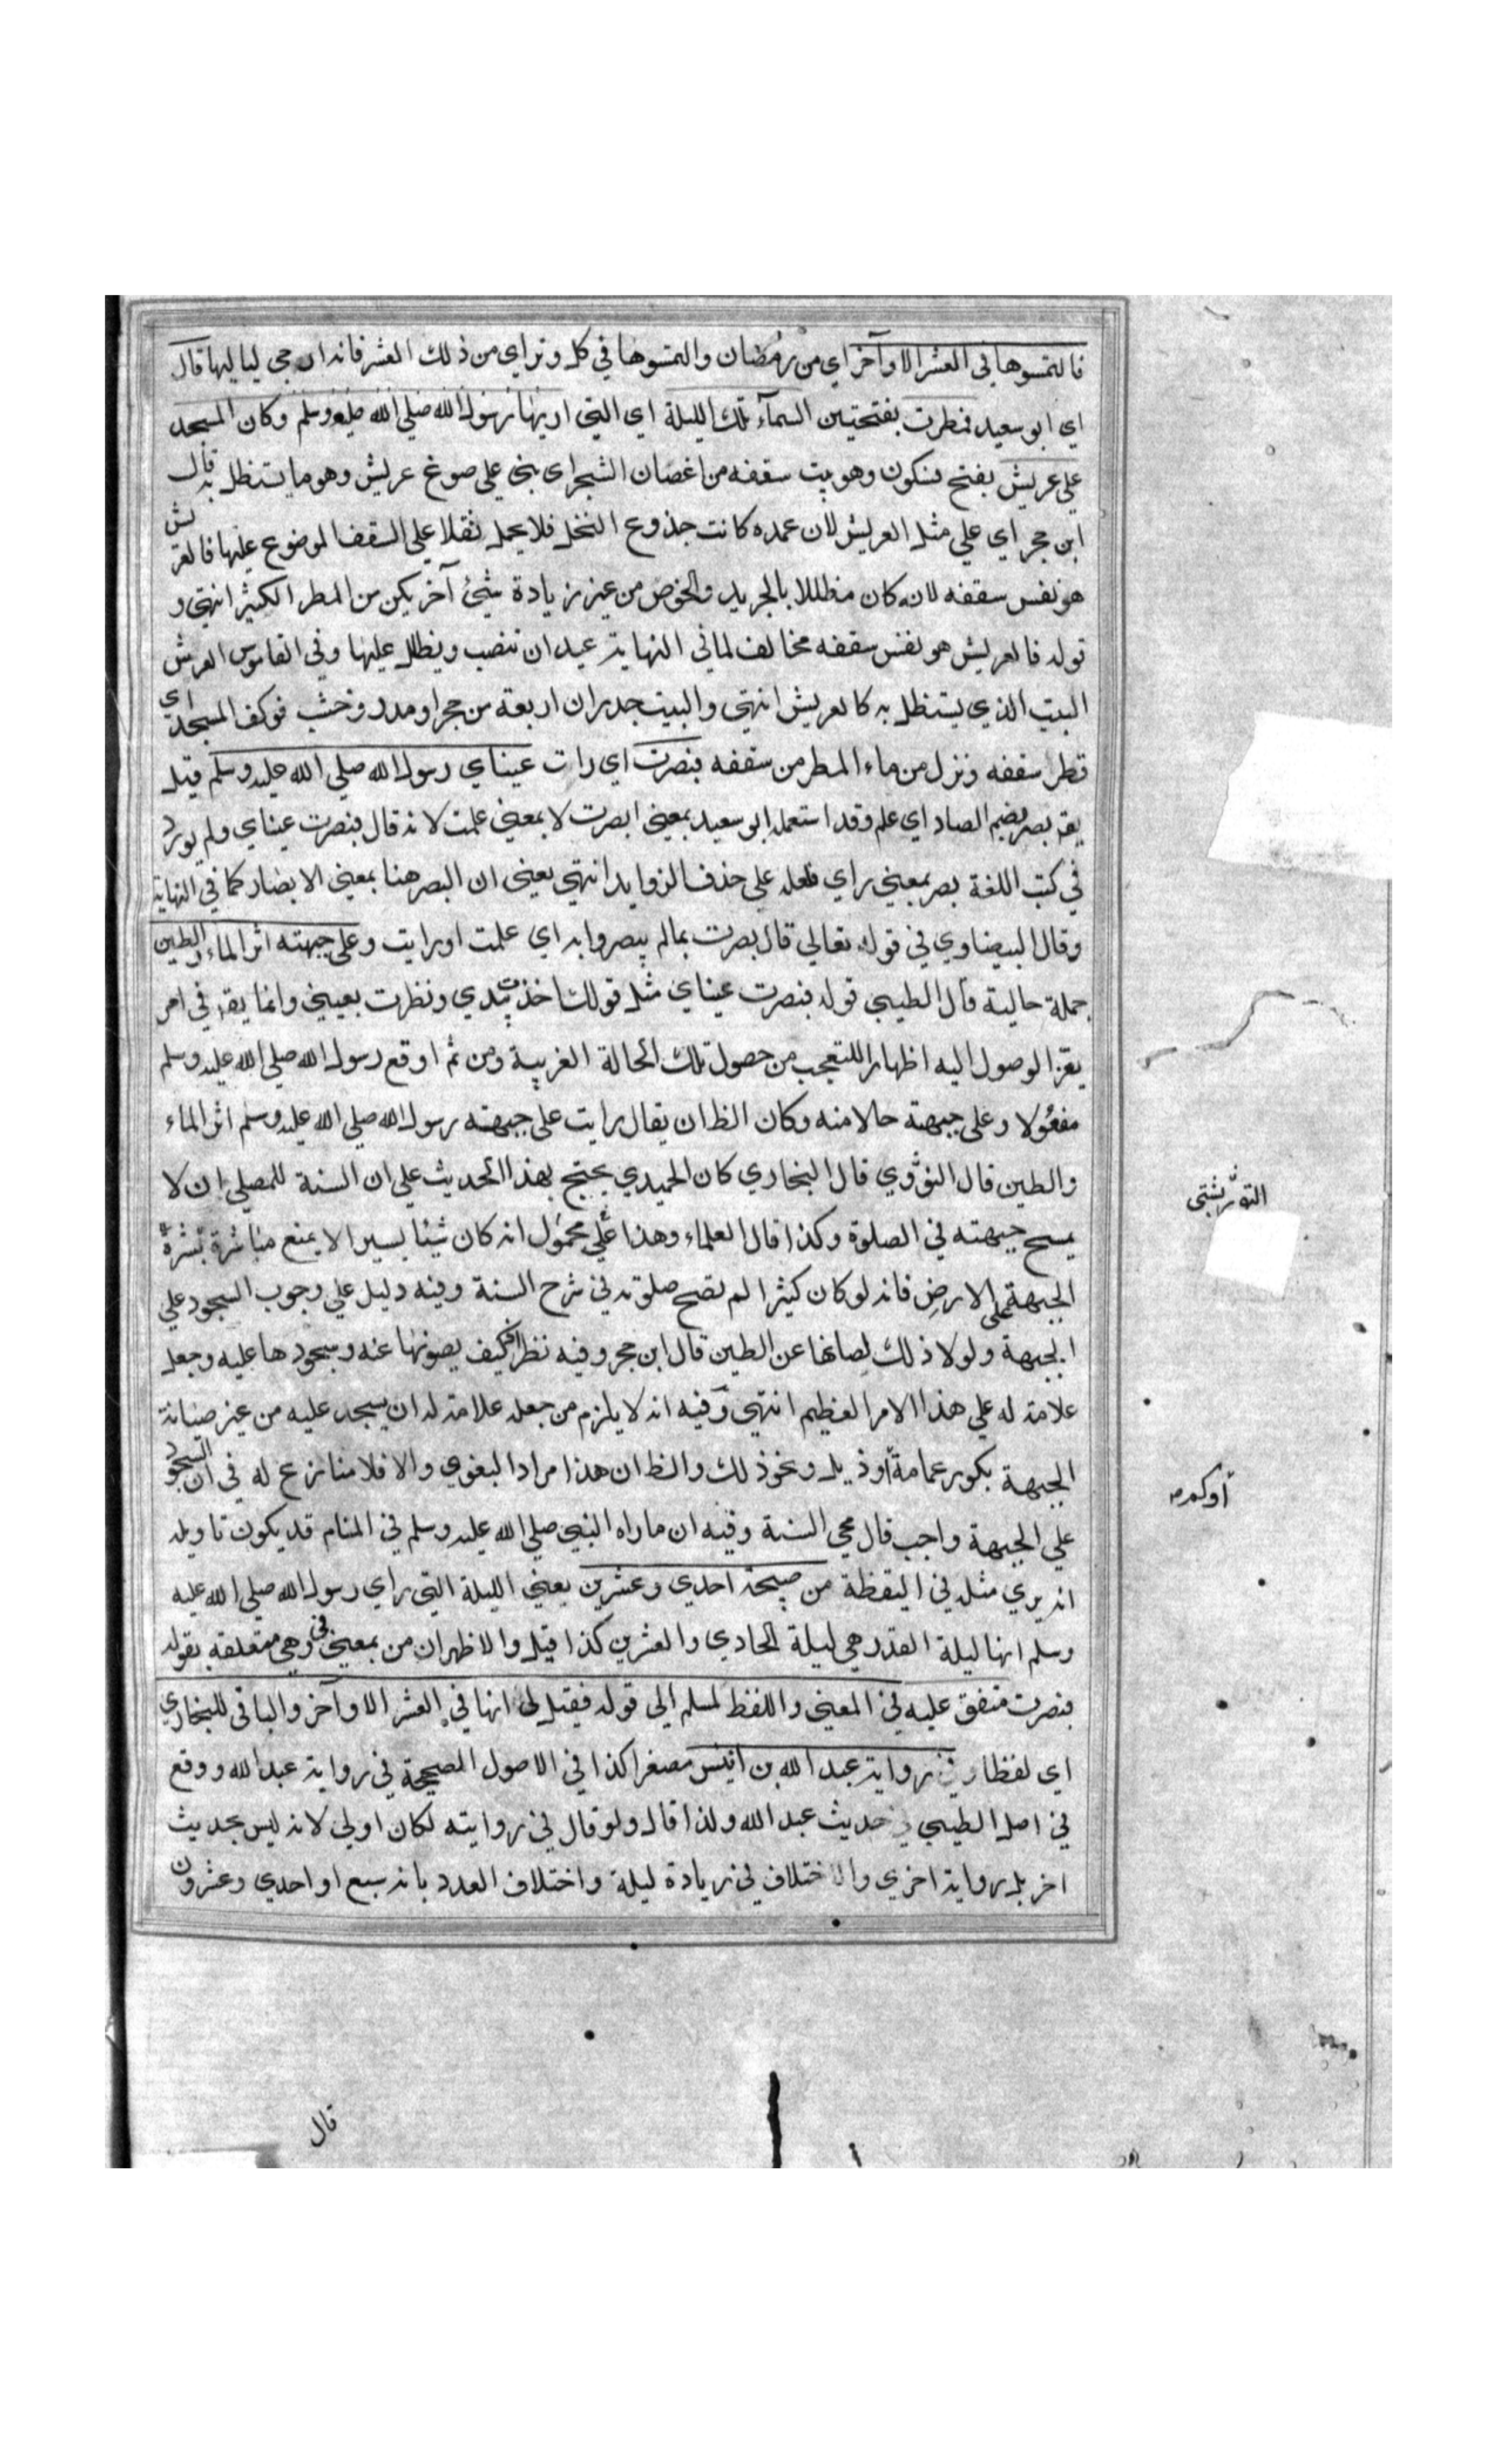 فالتمسوها في العشر الاواخر اي من رمضان والتمسوها في كل وتر اي من ذلك العشر فانه ارجى لياليها قال
اي ابو سعيد فمطرت بفتحتين السمآء تلك الليلة اي التي اريها رسول الله صلى الله عليه وسلم وكان المسجد
علي عريش بفتح فسكون وهو بيت سقفه من اغصان الشجر اي بني علي صوغ عريش وهو ما يستظل به قال
ابن حجر اي علي مثل العريش لان عمده كانت جذوع النخل فلا يحمل ثقلا علي السقف الموضوع عليها فالعرش
هو نفس سقفه لانه كان مظللا بالجريد والخوص من غير زيادة شئ آخر يكن من المطر الكثير انتهى و
قوله فالعريش هو نفس سقفه مخالف لما في النهاية عيدان تنصب ويظلل عليها وفي القاموس العرش
البيت الذي يستظل به كالعريش انتهى والبيت جدران اربعة من حجر او مدر وخشب فوكف المسجد اي
قطر سقفه ونزل من ماء المطر من سقفه فبصرت اي رات عيناي رسول الله صلي الله عليه وسلم قيل
يقه بصر بضم الصاد اي علم وقد استعمل ابو سعيد بمعنى ابصرت لا بمعنى علمت لانه قال فبصرت عيناي ولم يورد
في كتب اللغة بصر بمعني راي فلعله علي حذف الزوايد انتهى يعني ان البصر هنا بمعني الابصار كما في النهاية
وقال البيضاوي في قوله تعالي قال بصرت بما لم يبصروا به اي علمت او رايت وعلي جبهته اثر الماء والطين
جملة حالية قال الطيبي قوله فبصرت عيناي مثل قولك اخذت بيدي ونظرت بعيني وانما يقه في امر
يعز الوصول اليه اظهارا للتعجب من حصول تلك الحالة الغريبة ومن ثم اوقع رسول الله صلي الله عليه وسلم
مفعولا وعلي جبهته حالا منه وكان الظ ان يقال رايت علي جبهته رسول الله صلي الله عليه وسلم اثر الماء
والطين قال النووي قال البخاري كان الحميدي يحتج بهذا الحديث علي ان السنة للمصلي ان لا
يمسح جبهته في الصلوة وكذا قال العلماء وهذا علي محمول انه كان شيئا يسيرا لا يمنع مباشرة بشرة
الجبهة علي الارض فانه لو كان كثيرا لم تصح صلوته في شرح السنة وفيه دليل علي وجوب السجود علي
الجبهة ولولا ذلك لصانها عن الطين قال ابن حجر وفيه نظر فكيف يصونها عنه وسجودها عليه وجعل
علامة له علي هذا الامر العظيم انتهى وفيه انه لا يلزم من جعله علامة له ان يسجد عليه من غير صيانة
الجبهة بكور عمامة او ذيل ونحو ذلك والظ ان هذا مراد البغوي والا فلا منازع له في ان السجود
علي الجبهة واجب قال محي السنة وفيه ان ما راه النبي صلي الله عليه وسلم في المنام قد يكون تاويله
انه يري مثله في اليقظة من صبيحة احدي وعشرين يعني الليلة التي راي رسول الله صلي الله عليه
وسلم انها ليلة القدر هي ليلة الحادي والعشرين كذا قيل والاظهر ان من بمعني في وهي متعلقة بقوله
فبصرت متفق عليه في المعني واللفظ لمسلم الي قوله فقيل لي انها في العشر الاواخر والباقي للبخاري
اي لفظا وفي رواية عبد الله بن انيس مصغرا كذا في الاصول الصحيحة في رواية عبد الله ووقع
في اصل الطيبي في حديث عبد الله ولذا قال ولو قال في روايته لكان اولي لانه ليس بحديث
اخر بل رواية اخري والاختلاف في زيادة ليلة واختلاف العدد بانه سبع او احدي وعشرون
التوربشتي
قال